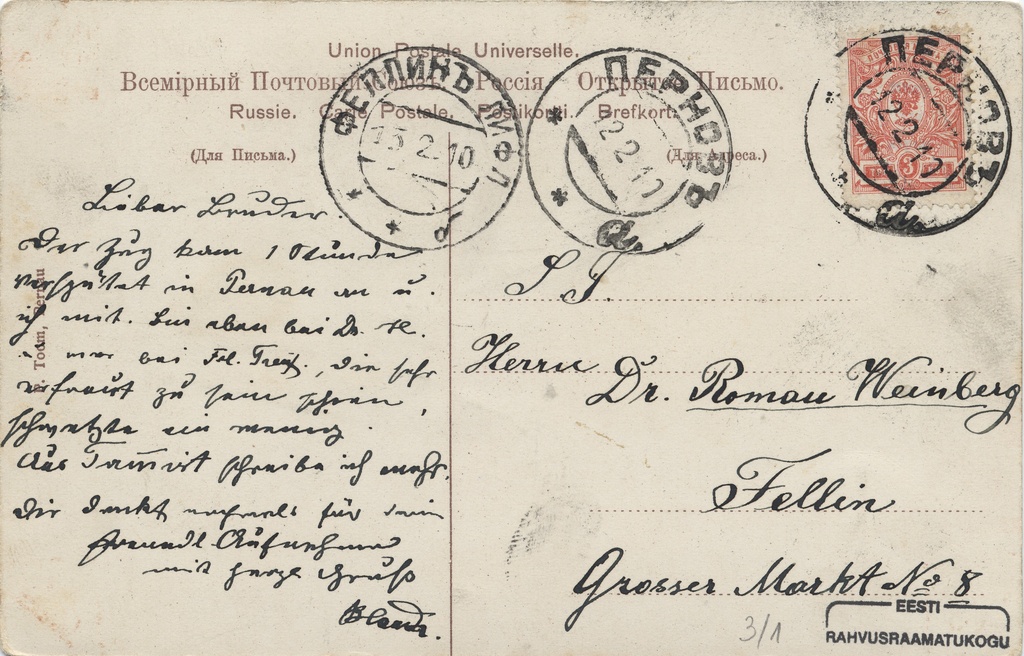 Union Postale Universelle.
Всемірный Почтовый Союзъ. Россія. Открытое Письмо.
Russie. Carte Postale. Postikorti. Brefkort.
(Для Письма.) (Для Адреса.)
ФЕЛЛИНЪ ЛИФЛ
13.2.10
ПЕРНОВЪ
12.2.10
а.
ПЕРНОВЪ
12.2.10
а.
3
Lieber Bruder
Der Zug kam 1 Stunde
verspätet in Pernau an u.
ich mit. Bin eben bei Dr. H.
war bei Frl., die sehr
erfreut zu sein schien,
schwatzte ein wenig.
Aus schreibe ich mehr.
Dir dankt nochmals für deine
freundl. Aufnahme
mit herzl Gruß
Toom, Pernau
S. T.
Herrn
Dr. Roman Weinberg
Fellin
Grosser Markt No 8
3/1
EESTI
RAHVUSRAAMATUKOGU